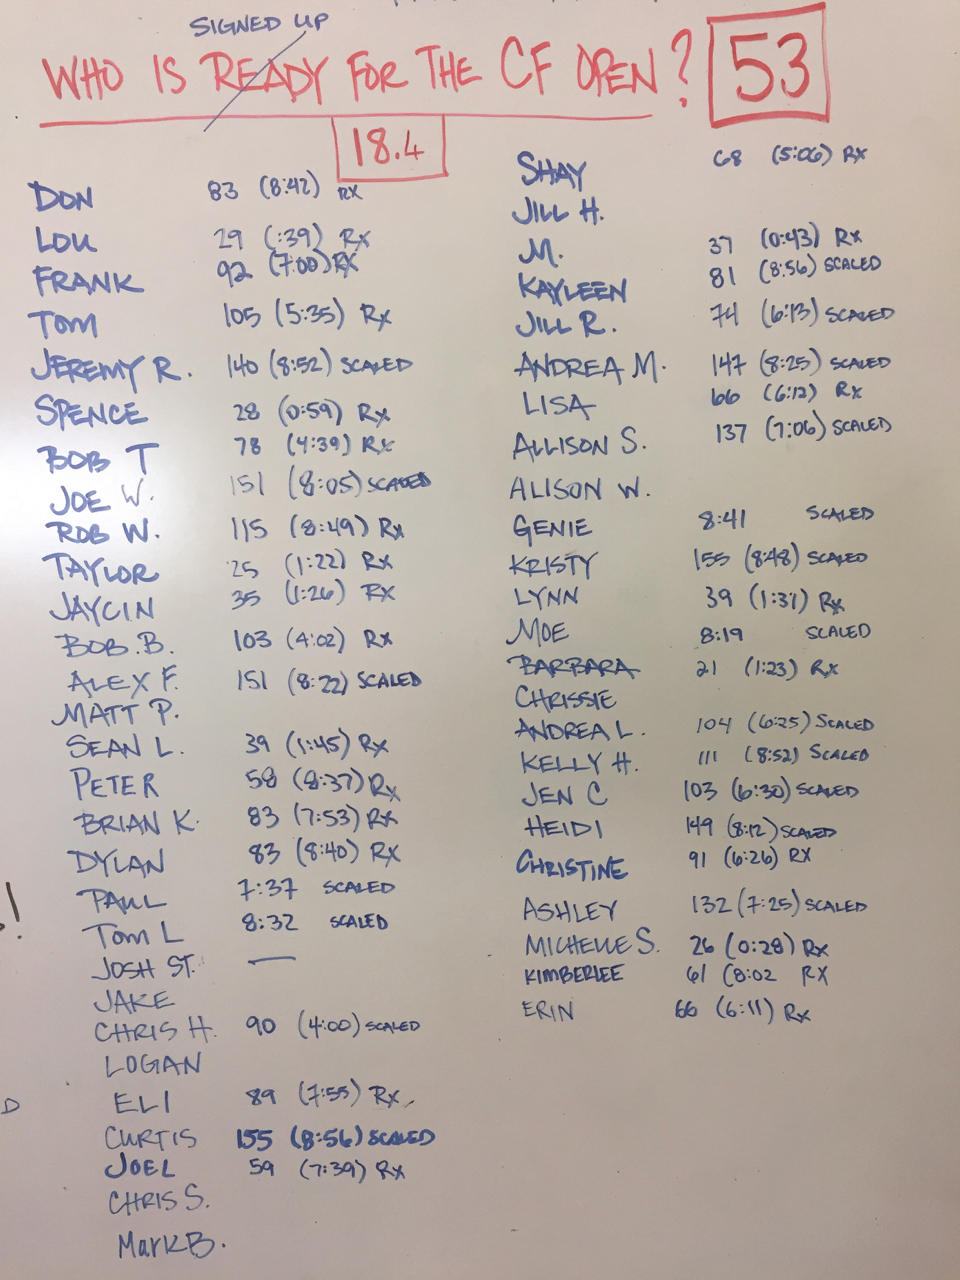 SIGNED UP
WHO IS READY FOR THE CF OPEN? 53
18.4
DON 83 (8:42) RX
LOU 29 (:39) RX
FRANK 92 (7:00) RX
TOM 105 (5:35) RX
JEREMY R. 140 (8:52) SCALED
SPENCE 28 (0:59) RX
BOB T 78 (4:39) RX
JOE W. 151 (8:05) SCALED
ROB W. 115 (8:49) RX
TAYLOR 25 (1:22) RX
JAYCIN 35 (1:26) RX
BOB.B. 103 (4:02) RX
ALEX F. 151 (8:22) SCALED
MATT P.
SEAN L. 39 (1:45) RX
PETER 58 (8:37) RX
BRIAN K. 83 (7:53) RX
DYLAN 83 (8:40) RX
PAUL 7:37 SCALED
TOM L 8:32 SCALED
JOSH ST. —
JAKE
CHRIS H. 90 (4:00) SCALED
LOGAN
ELI 89 (7:55) RX
CURTIS 155 (8:56) SCALED
JOEL 59 (7:39) RX
CHRIS S.
MARK B.
SHAY 68 (5:06) RX
JILL H.
M. 37 (0:43) RX
KAYLEEN 81 (8:56) SCALED
JILL R. 74 (6:13) SCALED
ANDREA M. 147 (8:25) SCALED
LISA 66 (6:12) RX
ALLISON S. 137 (7:06) SCALED
ALISON W.
GENIE 8:41 SCALED
KRISTY 155 (8:48) SCALED
LYNN 39 (1:31) RX
MOE 8:19 SCALED
BARBARA 21 (1:23) RX
CHRISSIE
ANDREA L. 104 (6:25) SCALED
KELLY H. 111 (8:52) SCALED
JEN C 103 (6:30) SCALED
HEIDI 149 (8:12) SCALED
CHRISTINE 91 (6:26) RX
ASHLEY 132 (7:25) SCALED
MICHELLE S. 26 (0:28) RX
KIMBERLEE 61 (8:02 RX
ERIN 66 (6:11) RX